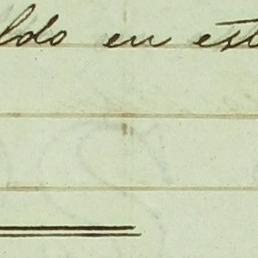 ldo en est